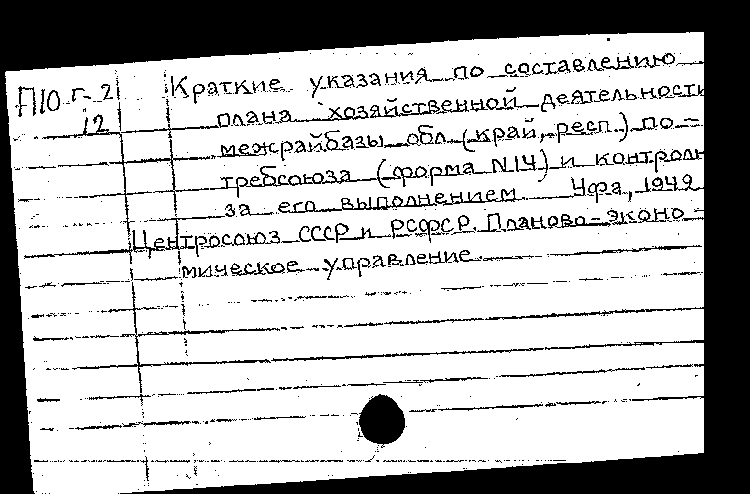 П10 г-2
12
Краткие указания по составлению
плана хозяйственной деятельности
межрайбазы обл. (край, респ.) по-
требсоюза (форма N14) и контроль
за его выполнением. Уфа, 1949
Центросоюз СССР и РСФСР. Планово-эконо-
мическое управление.